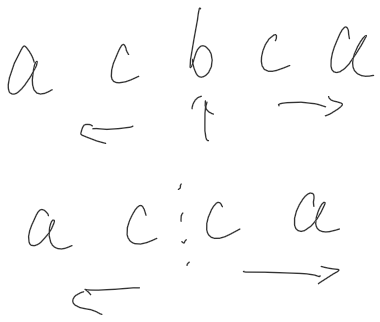 a c b c a
a c c a